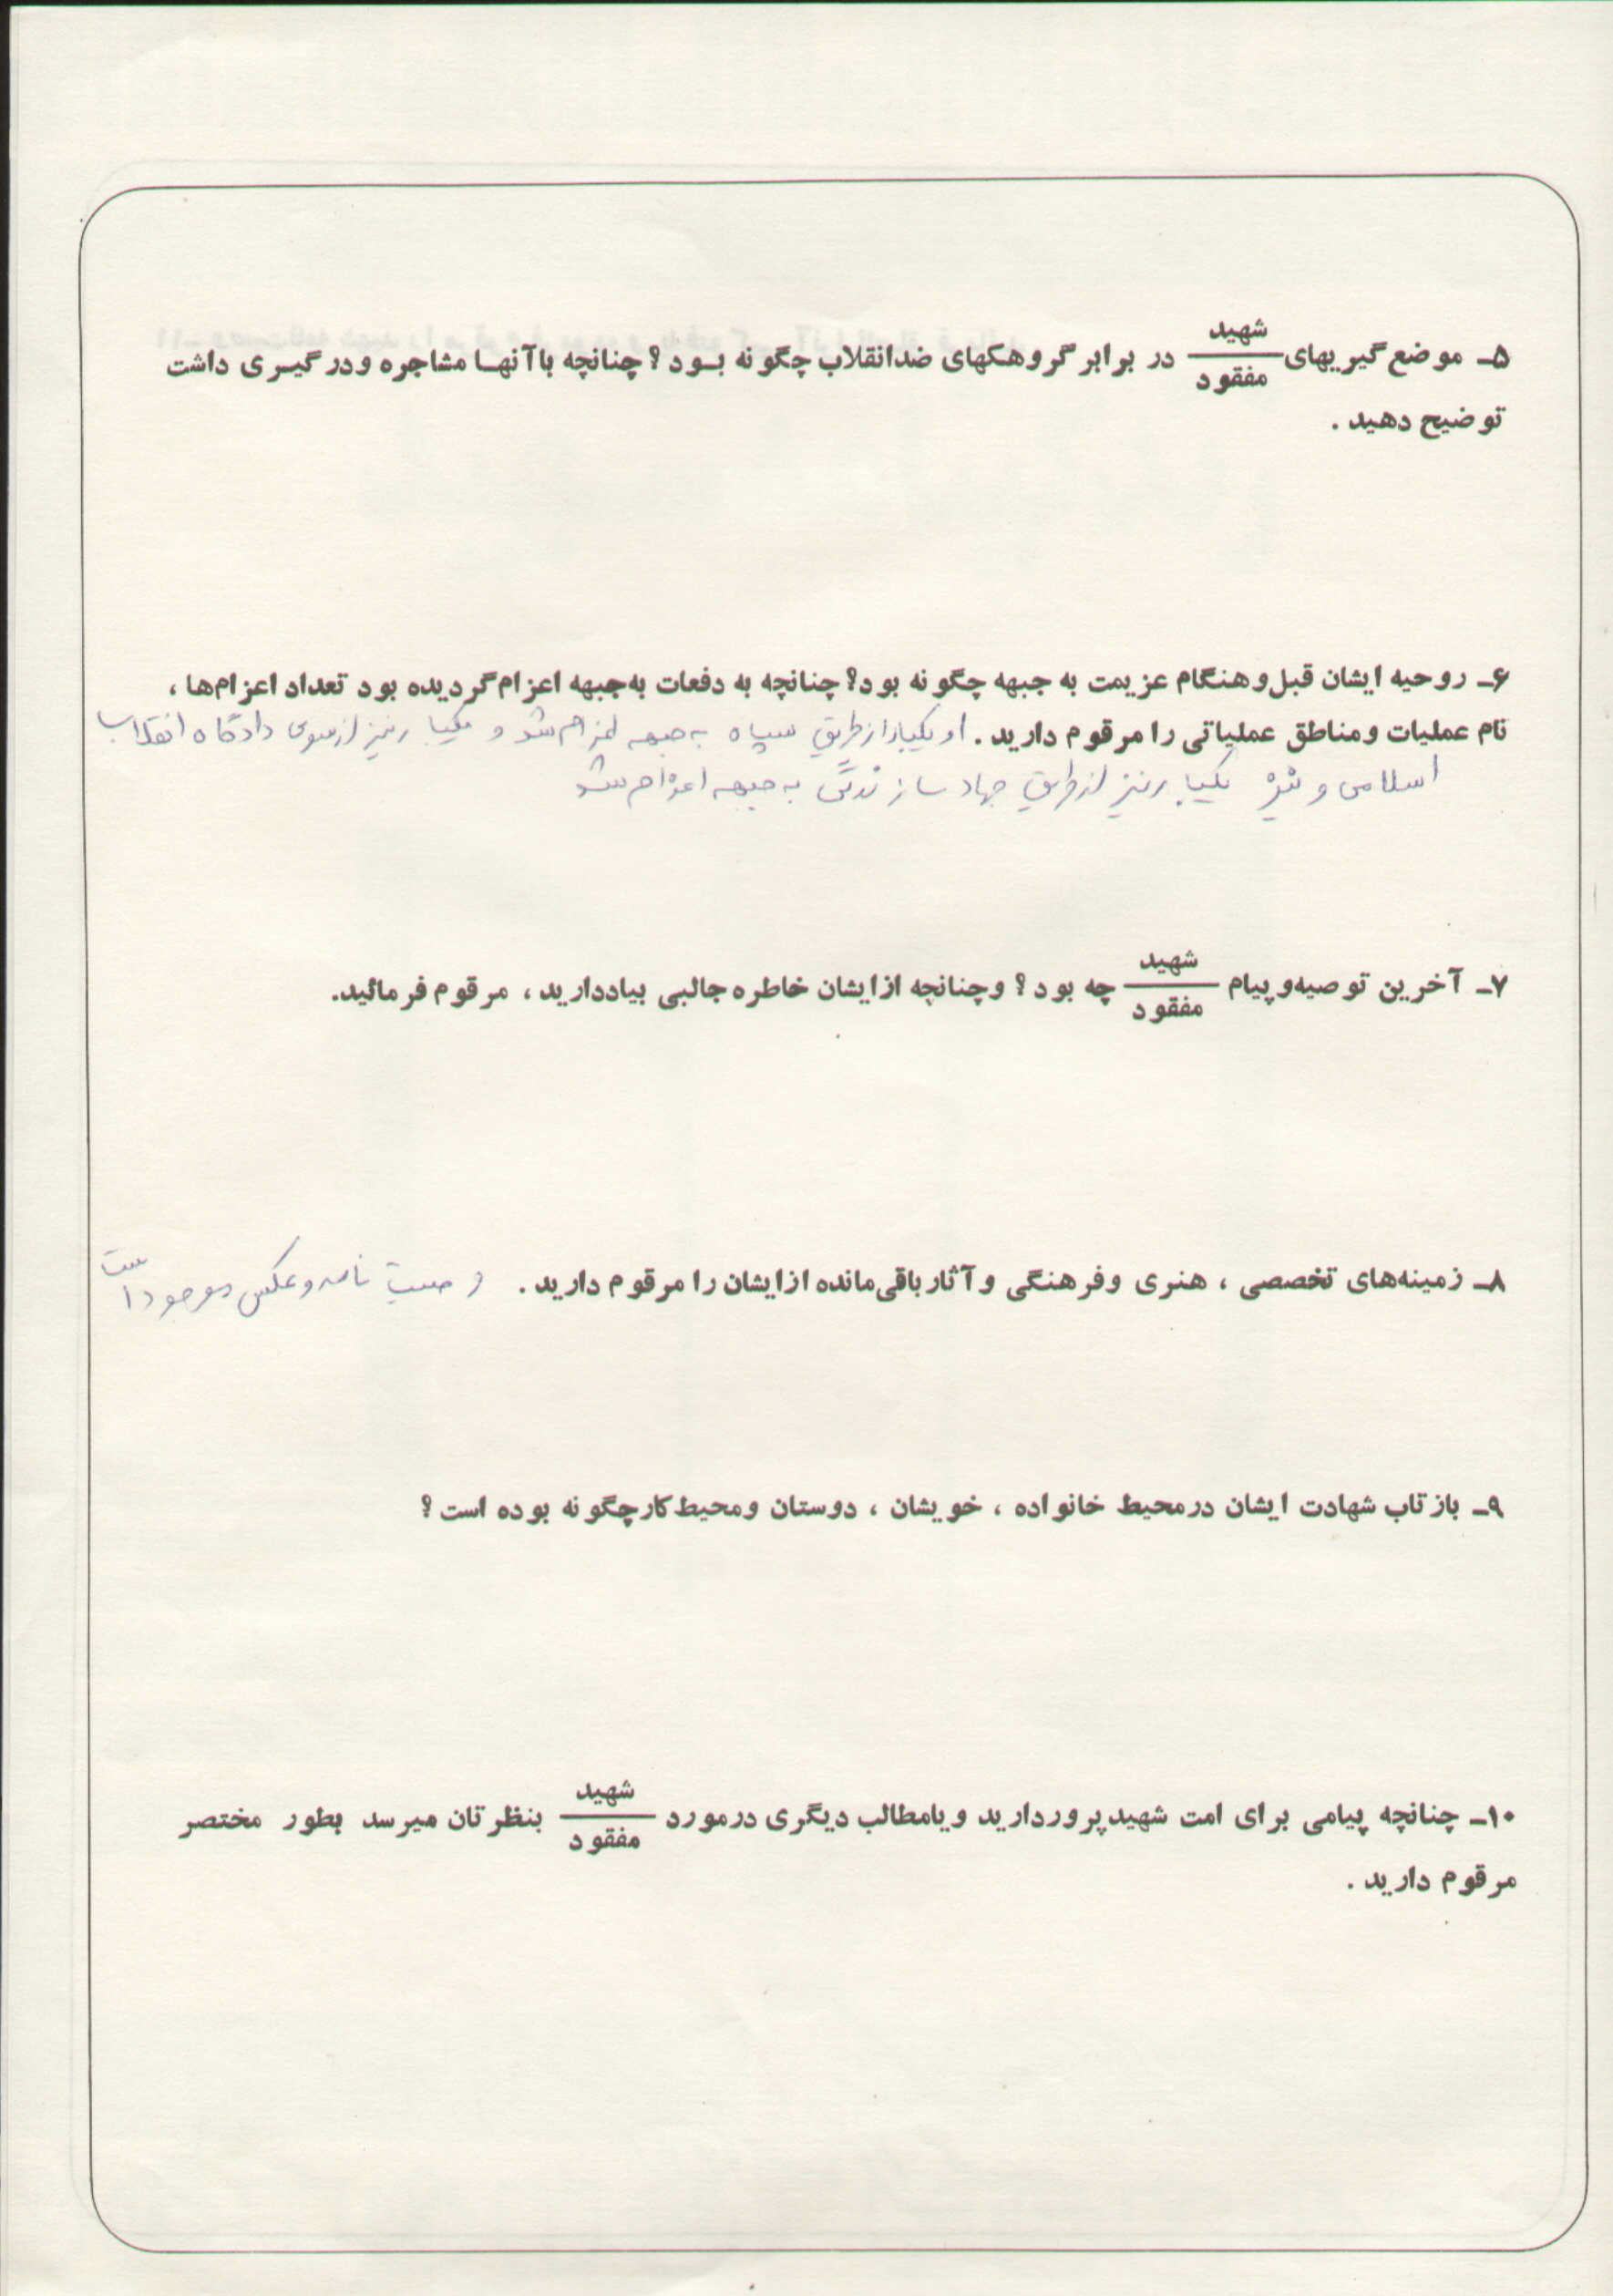 ۵ـ موضع‌گیریهای شهید/مفقود در برابر گروهکهای ضدانقلاب چگونه بود؟ چنانچه باآنها مشاجره ودرگیری داشت
توضیح دهید.
۶ـ روحیه ایشان قبل‌وهنگام عزیمت به جبهه چگونه بود؟ چنانچه به دفعات به‌جبهه اعزام‌گردیده بود تعداد اعزام‌ها،
نام عملیات ومناطق عملیاتی را مرقوم دارید. او یکبار از طریق سپاه به جبهه اعزام شد و یکبار نیز از سوی دادگاه انقلاب
اسلامی و نیز یکبار نیز از طریق جهاد سازندگی به جبهه اعزام شد
۷ـ آخرین توصیه‌وپیام شهید/مفقود چه بود؟ وچنانچه ازایشان خاطره جالبی بیاددارید، مرقوم فرمائید.
۸ـ زمینه‌های تخصصی، هنری وفرهنگی وآثارباقی‌مانده ازایشان را مرقوم دارید. وصیت نامه و عکس موجود است
۹ـ بازتاب شهادت ایشان درمحیط خانواده، خویشان، دوستان ومحیط‌کارچگونه بوده است؟
۱۰ـ چنانچه پیامی برای امت شهیدپرور دارید ویامطالب دیگری درمورد شهید/مفقود بنظرتان میرسد بطور مختصر
مرقوم دارید.